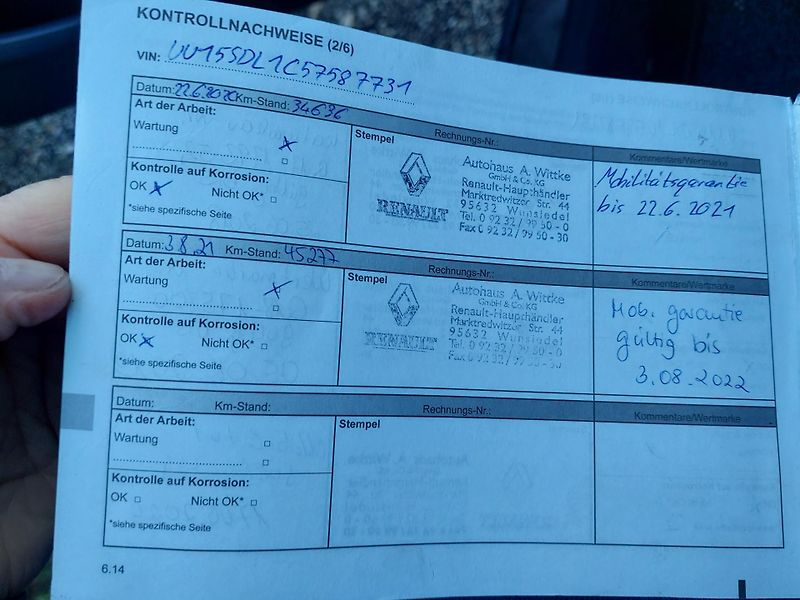 KONTROLLNACHWEISE (2/6)
VIN: UU15SDL1C57587731
Datum: 22.6.2020 Km-Stand: 34636
Art der Arbeit:
Wartung
Kontrolle auf Korrosion:
OK Nicht OK*
*siehe spezifische Seite
Stempel
Rechnungs-Nr.:
RENAULT
Autohaus A. Wittke
GmbH & Co. KG
Renault-Haupthändler
Marktredwitzer Str. 44
95632 Wunsiedel
Tel. 0 92 32 / 99 50 - 0
Fax 0 92 32 / 99 50 - 30
Kommentare/Wertmarke
Mobilitätsgarantie
bis 22.6.2021
Datum: 3.8.21 Km-Stand: 45277
Art der Arbeit:
Wartung
Kontrolle auf Korrosion:
OK Nicht OK*
*siehe spezifische Seite
Stempel
Rechnungs-Nr.:
RENAULT
Autohaus A. Wittke
GmbH & Co. KG
Renault-Haupthändler
Marktredwitzer Str. 44
95632 Wunsiedel
Tel. 0 92 32 / 99 50 - 0
Fax 0 92 32 / 99 50 - 30
Kommentare/Wertmarke
Mob. garantie
gültig bis
3.08.2022
Datum: Km-Stand:
Art der Arbeit:
Wartung
Kontrolle auf Korrosion:
OK Nicht OK*
*siehe spezifische Seite
Stempel
Rechnungs-Nr.:
Kommentare/Wertmarke
6.14